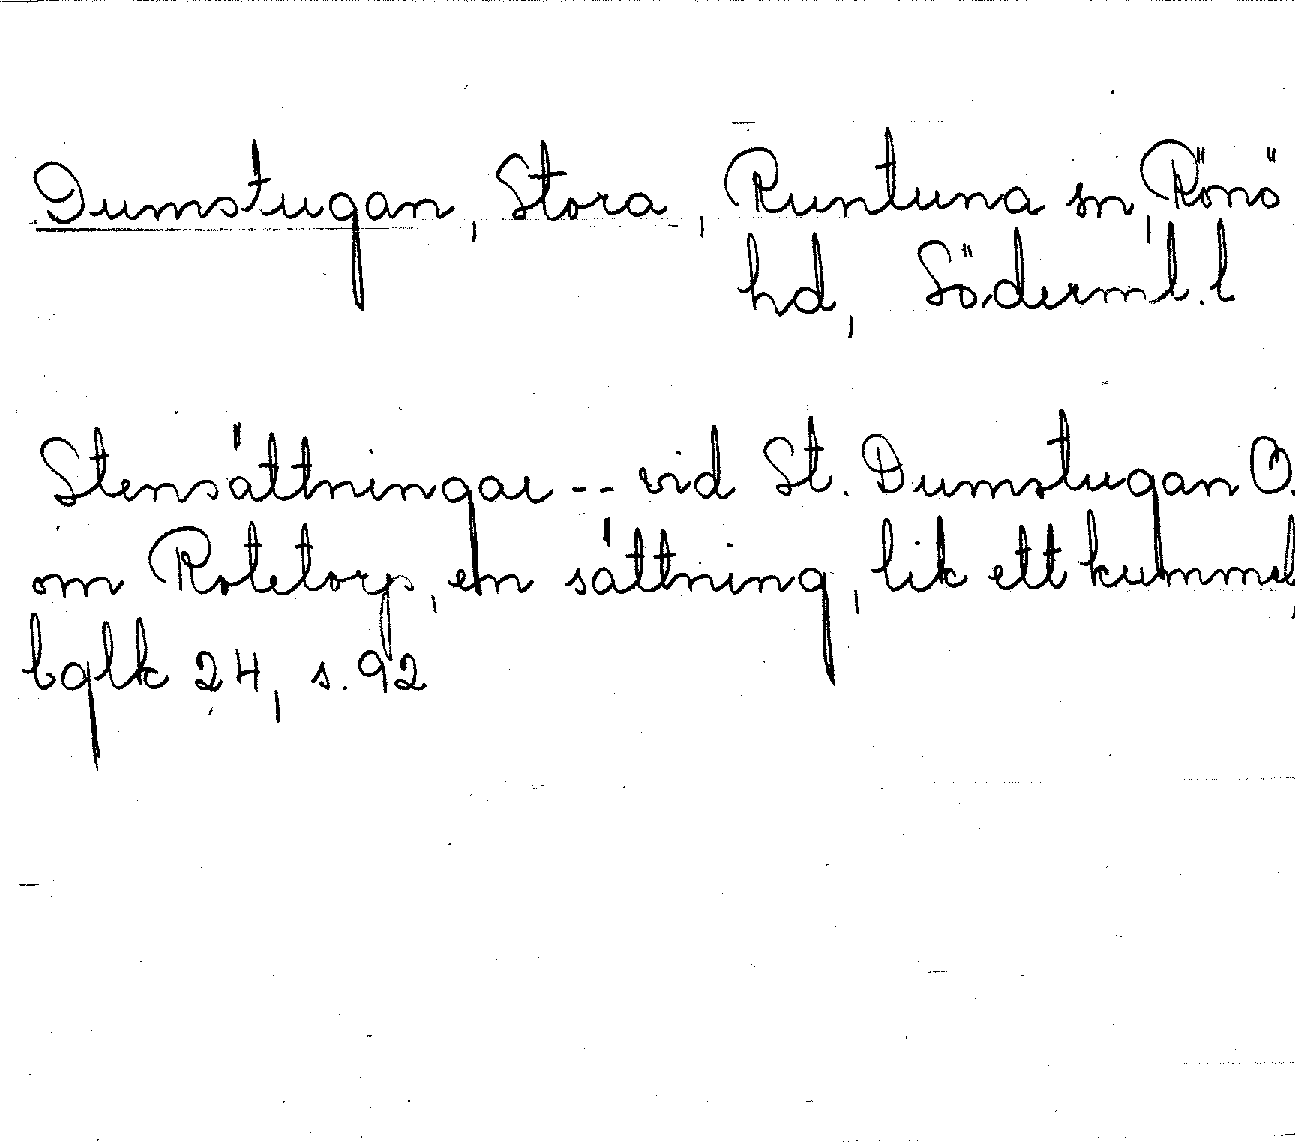 Dumstugan, Stora, Runtuna sn, Rönö
hd, Söderml. l
Stensättningar -- vid St. Dumstugan O.
om Rotetorp, en sättning, lik ett kummel,
bglk 24, s. 92